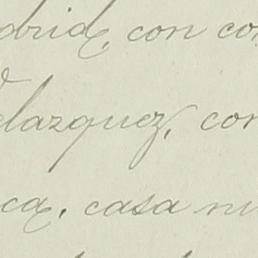 adrid, con co
elazquez, con
ca, casa nú